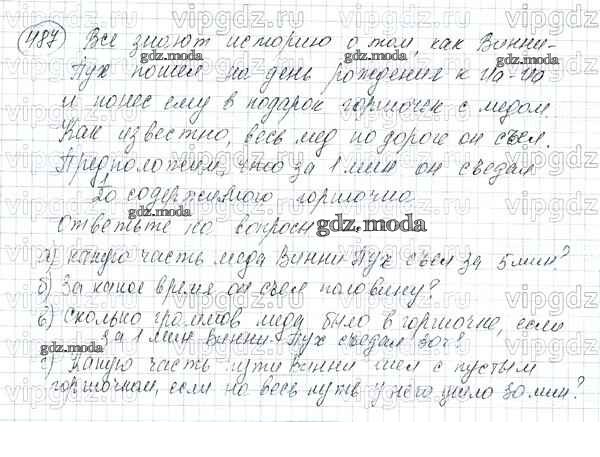 487 Все знают историю о том, как Винни-
Пух пошел на день рождения к Иа-Иа
и понес ему в подарок горшочек с медом.
Как известно, весь мед по дороге он съел.
Предположим, что за 1 мин он съедал
1/20 содержимого горшочка.
Ответьте на вопросы
а) какую часть меда Винни-Пух съел за 5 мин?
б) За какое время он съел половину?
в) Сколько граммов меда было в горшочке, если
за 1 мин Винни-Пух съедал 30г?
г) Какую часть пути Винни шел с пустым
горшочком, если на весь путь у него ушло 30 мин?
vipgdz.ru
gdz.moda
gdz.moda
gdz.moda
gdz.moda
gdz.moda